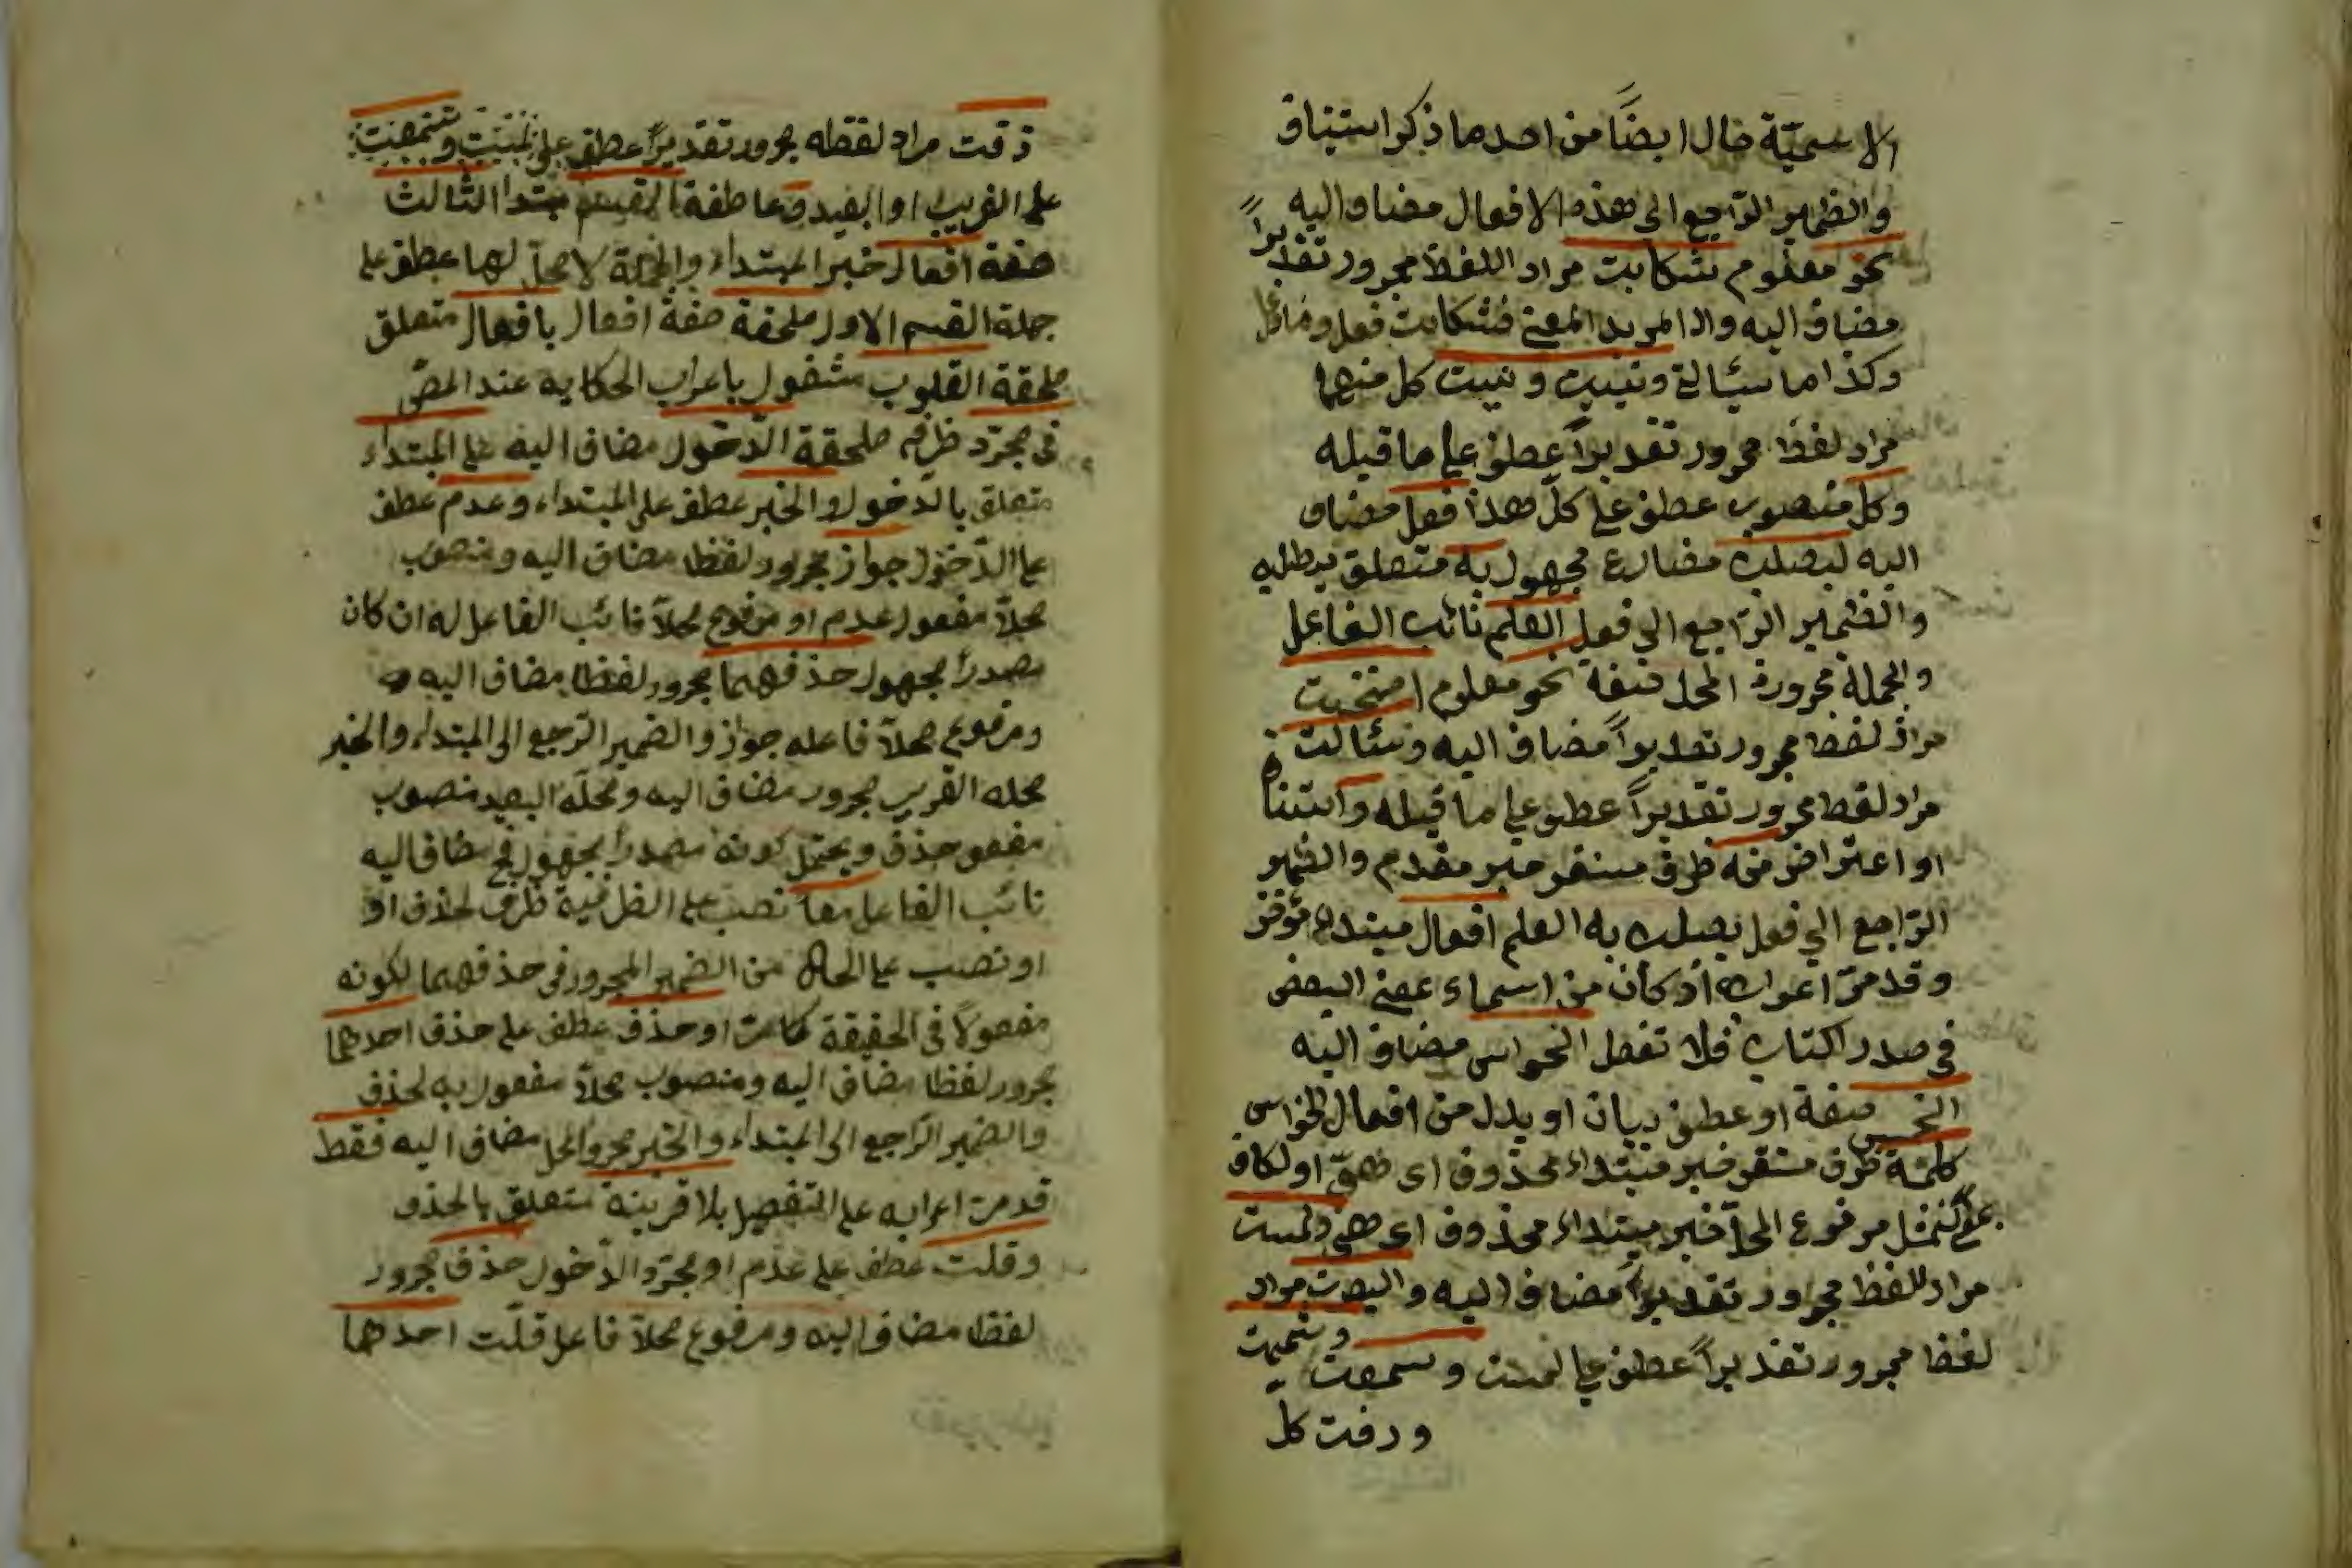 الاسمية حال ايضاً من احدها ذكر استيناف
والضمير الراجع الى هذه الافعال مضاف اليه
نحو معلوم شكايت مراد اللفظ مجرور تقديراً
مضاف اليه واذا اريد المعنى فشكايت فعل وفاعل
وكذا ما سئالت وتبنيت كل منهما
مراد لفظ مجرور تقديراً عطف على ما قبله
وكل منصوب عطف على كل هذا فعل مضاف
اليه ليصلب مضارع مجهول به متعلق بيطلب
والضمير الراجع الى فعل العلم نائب الفاعل
والجملة مجرورة المحل صفة نحو معلوم امتخبت
مراد لفظ مجرور تقديراً مضاف اليه وسئالت
مراد لفظ مجرور تقديراً عطف على ما قبله واستيناف
او اعتراض منه ظرف مستقر خبر مقدم والضمير
الراجع الى فعل يصلب به العلم افعال مبتداء مؤخر
وقد مرّ اعرابه اذ كان من اسماء بمعنى البعض
في صدر الكتاب فلا تغفل الحواس مضاف اليه
الخمس صفة او عطف بيان او بدل من افعال الحواس
كلمة ظرف مستقر خبر مبتداء محذوف اى هى او لكاف
بمعنى كمثل مرفوع المحل خبر مبتداء محذوف اى هى ولمست
مراد للفظ مجرور تقديراً مضاف اليه وابصرت مراد
لفظ مجرور تقديراً عطف على لمست وسمعت وشممت
وذقت كل
ذقت مراد لفظه مجرور تقديراً عطف على
على القريب او البعيد وعاطفة القسم مبتدا الثالث
صفة افعال خبر المبتداء والجملة لا محل لها عطف على
جملة القسم الاول ملحقة صفة افعال بافعال متعلق
ملحقة القلوب مشغول باعراب الحكايه عند المص
فى مجرّد ظرف ملحقة الدّخول مضاف اليه على المبتداء
متعلق بالدّخول والخبر عطف على المبتداء وعدم عطف
على الدّخول جواز مجرور لفظا مضاف اليه ومنصوب
محلاً مفعول عدم او مرفوع محلاً نائب الفاعل له ان كان
مصدراً مجهول حذفهما مجرور لفظا مضاف اليه
ومرفوع محلاً فاعله جواز والضمير الراجع الى المبتداء والخبر
محله القريب مجرور مضاف اليه ومحله البعيد منصوب
مفعول حذف ويحتمل كونه مصدراً مجهول مضاف اليه
نائب الفاعل معا نصب على الظرفية ظرف لحذف او
او نصب على الحال من الضمير المجرور في حذفهما لكونه
مفعولاً فى الحقيقة كامت او حذف عطف على حذف احدهما
مجرور لفظا مضاف اليه ومنصوب محلاً مفعول به لحذف
والضمير الراجع الى المبتداء والخبر مجرور المحل مضاف اليه فقط
قد مرت اعرابه على التفصيل بلا قرينة متعلق بالحذف
وقلت عطف على عدم او مجرّد الدّخول حذف مجرور
لفظا مضاف اليه ومرفوع محلاً فاعل قلّت احدهما